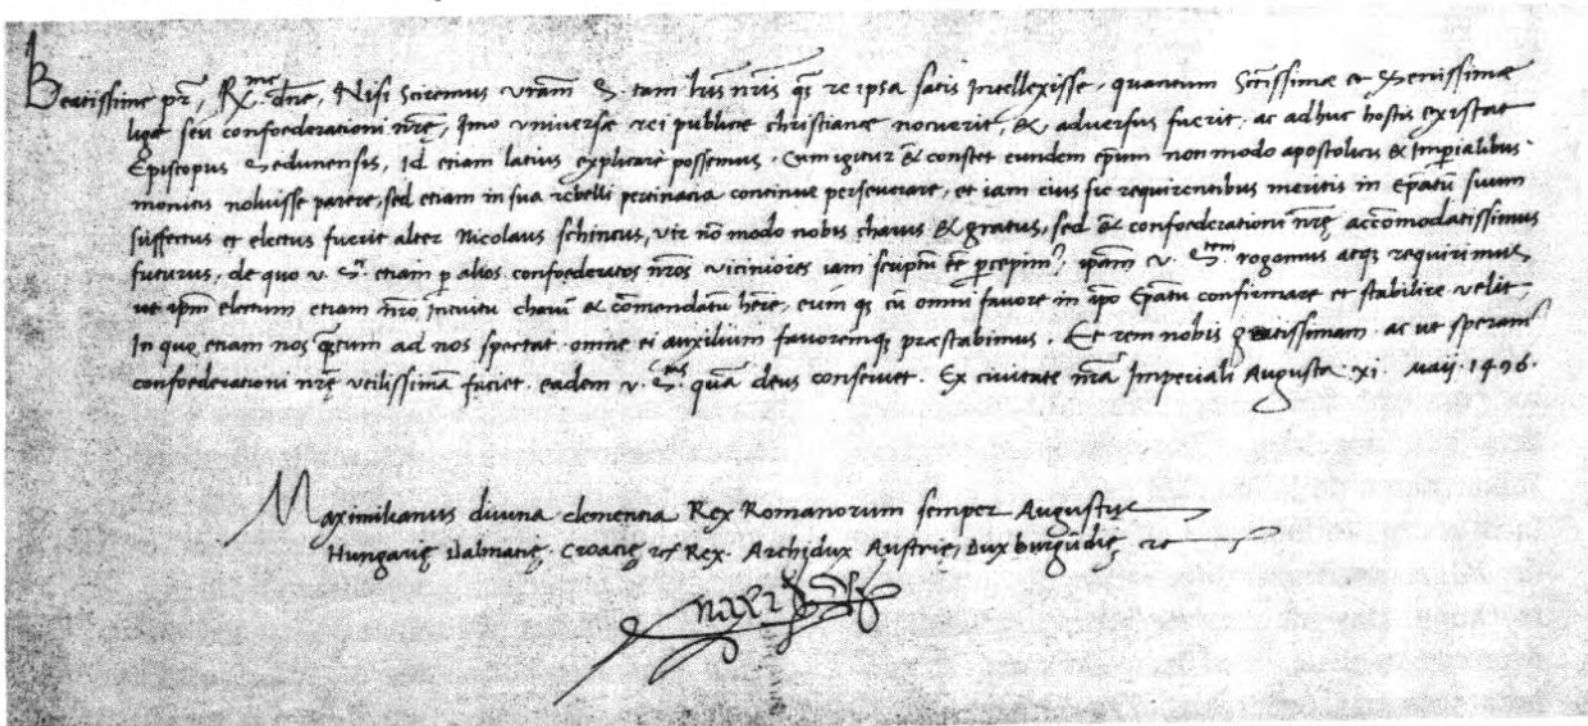 Beatissime pr̄, R.me dn̄e, Nisi sciremus vram̄ S. tam lr̄is nr̄is q̄ȝ re ipsa satis Intellexisse, quantum Sctīssimæ et Serenissimæ
ligæ seu confoederationi nr̄ę, Imo universæ rei publicæ christianæ nocuerit, & adversus fuerit, ac adhuc hostis existat
Episcopus Sedunensis, Id etiam latius explicare possemus. Cum igitur & constet eundem ep̄um non modo apostolicis & Imperialibus
monitis noluisse parere, sed etiam in sua rebelli pertinacia continue perseverare, et iam eius sic requirentibus meritis in Ep̄atū suum
suffectus et electus fuerit alter Nicolaus schineus, vir nō modo nobis charus & gratus, sed & confoederationi nr̄ę accōmodatissimus
futurus, de quo v. S. etiam p̱ alios confoederatos nr̄os viciniores iam scriptū ēē p̱cepim9, ipsam̄ v. S.tem rogamus atqȝ requirimus
ut ip̄m electum etiam nr̄o Intuitu charū & cōmendatū hēre, eum qȝ cū omni favore in ip̄o Ep̄atu confirmare et stabilire velit,
In quo etiam nos q̄ntum ad nos spectat omne ei auxilium favoremqȝ præstabimus. Et rem nobis gratissimam ac ut speram9
confoederationi nr̄ę utilissimā faciet eadem v. S.tas quā deus conservet. Ex civitate nr̄a Imperiali Augusta xi. Maij. 1496.
Maximilianus divina clementia Rex Romanorum semper Augustus
Hungarię Dalmatię. Croatię ꝛc̄ Rex. Archidux Austrię, Dux burgūdię ꝛc